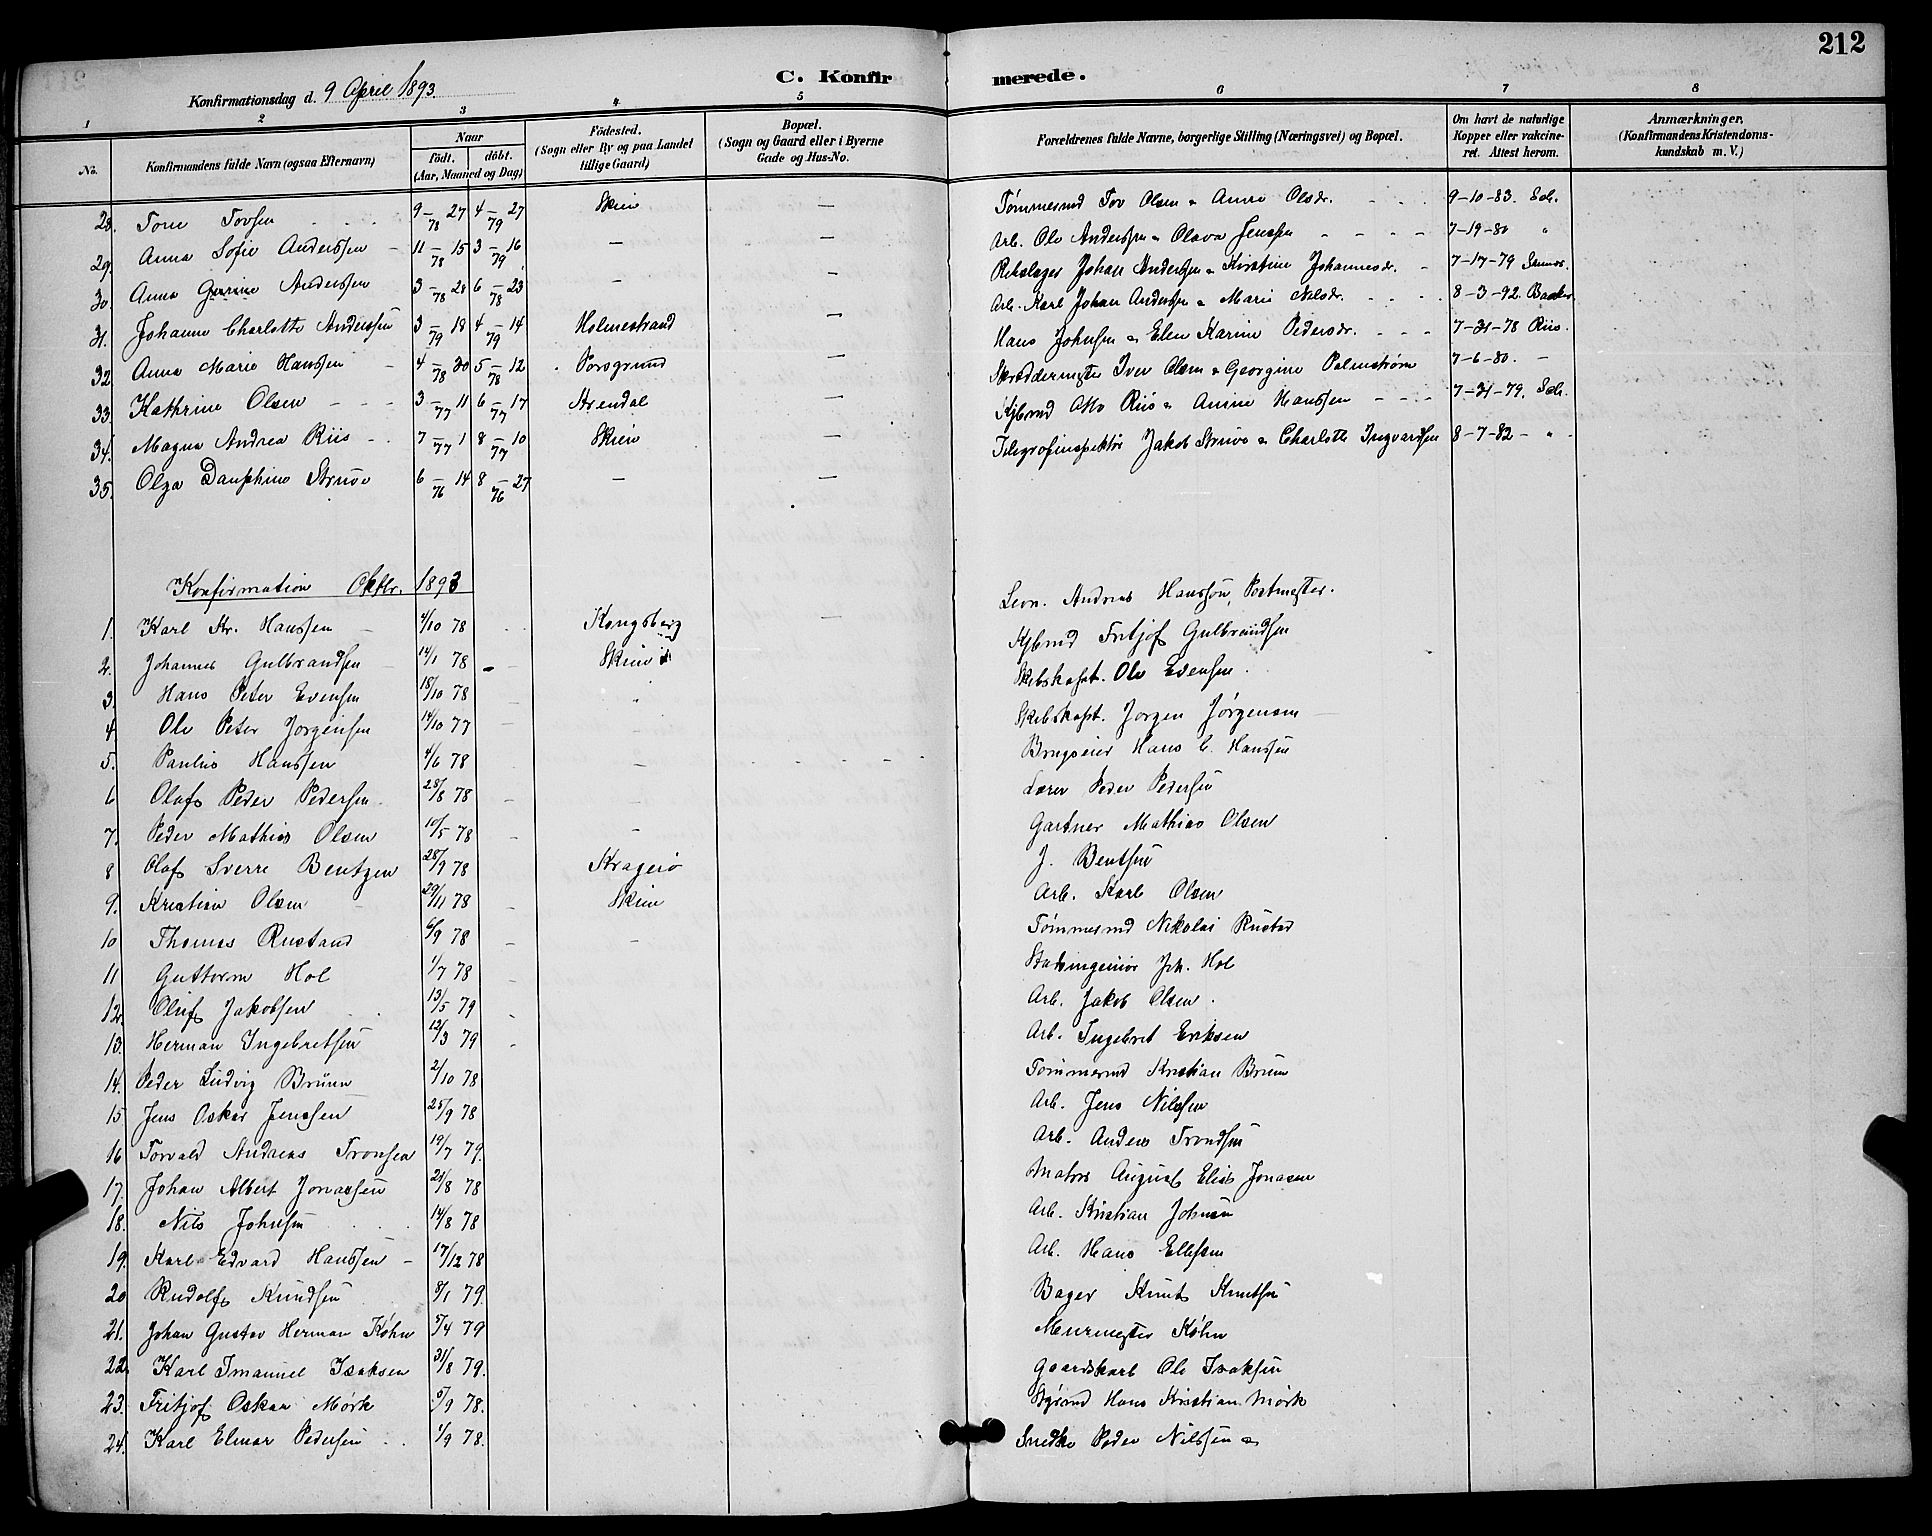 212
C. Konfirmerede.
Konfirmationsdag d. 9 April 1893.
1 2 3 4 5 6 7 8
No. Konfirmandens fulde Navn (ogsaa Efternavn) Naar født. døbt. (Aar, Maaned og Dag) Fødested. (Sogn eller By og paa Landet tillige Gaard) Bopæl. (Sogn og Gaard eller i Byerne Gade og Hus-No. Forældrenes fulde Navne, borgerlige Stilling (Næringsvei) og Bopæl. Om havt de naturlige Kopper eller vakcineret. Attest herom. Anmærkninger, (Konfirmandens Kristendomskundskab m. V.)
28. Tone Tovsen 9-27 78 4-27 79 Skien — Tømmermd Tov Olsen & Anne Olsdr. 9-10-83. Sch.
29. Anna Sofie Anderssen 11-15 78 3-16 79 — — Arb. Ole Anderssen & Olava Jenssen 7-19-80 "
30. Anna Gurine Anderssen 3-28 78 6-23 78 — — Rebslager Johan Anderssen & Kirstine Johannesdr. 7-17-79
31. Johanne Charlotte Anderssen 3-19 79 4-14 79 Holmestrand — Arb. Karl Johan Anderssen & Marie Nilsdr. 8-3-92.
32 Anna Marie Hanssen 4-30 78 5-12 78 Porsgrund — Hans Johnsen & Elen Karine Pedersdr. 7-31-78 Riis.
33. Kathrine Olsen 3-11 77 6-17 77 Arendal — Skræddermester Iver Olsen & Georgine Palmstrøm 7-6-80. —
34. Magna Andrea Riis 7-1 77 8-10 77 Skien — Kjbmd Otto Riis & Amine Hanssen 7-31-79. Sch.
35. Olga Dauphine Struve 6-14 76 8-27 76 — — Telegrafinspektør Jakob Struve & Charlotte Ingvardsen 8-7-82 - "
Konfirmation Oktbr. 1893
1. Karl Kr. Hanssen 4/10 78 Kongsberg — Andreas Hanssen, Postmester.
2. Johannes Gulbrandsen 14/1 78 Skien Kjbmd Fritjof Gulbrandsen
3. Hans Peter Evensen 18/10 78 " Skibskapt. Ole Evensen.
4 Ole Peter Jorgensen 14/10 77 — Skibskapt. Jorgen Jørgensen
5. Paulus Hanssen 4/6 78 — Brugseier Hans C. Hanssen
6 Olaf Peder Pedersen 28/8 78 — Lærer Peder Pedersen
7. Peder Mathias Olsen 10/5 78 — Gartner Mathias Olsen
8 Olaf Sverre Bentzen 28/9 78 Kragerø J. Bentsen
9. Kristian Olsen 29/11 78 Skien Arb. Karl Olsen
10 Thomas Rustand 6/9 78 — Tømmermd Nikolai Rustad
11 Guttorm Hol 1/7 78 Stadsingeniør Joh. Hol
12. Oluf Jakobsen 13/5 79 Arb. Jakob Olsen.
13. Herman Ingebretsen 12/3 79 Arb. Ingebret Eriksen
14. Peder Ludvig Brunn 2/10 78 Tømmermd Kristian Brunn
15 Jens Oskar Jenssen 25/9 78 Arb. Jens Nilssen
16 Torvald Andreas Tronsen 19/7 79. Arb. Anders Trondsen
17. Johan Albert Jonassen 21/8 78 Matros August Elias Jonasen
18. Nils Johnsen 14/8 78 Arb. Kristian Johnsen
19. Karl Edvard Hanssen 17/12 78 Arb. Hans Ellefsen
20 Rudolf Knudsen 8/1 79. Bager Knut Knutsen
21. Johan Gustav Herman Køhn 5/4 79 Murmester Køhn
22. Karl Imanuel Isaksen 31/8 79. Gaardskarl Ole Isaksen
23. Fritjof Oskar Mørk 5/9 78. Styrmd Hans Kristian Mørk
24. Karl Elmar Pedersen 1/9 78. Snedker Peder Nilssen &